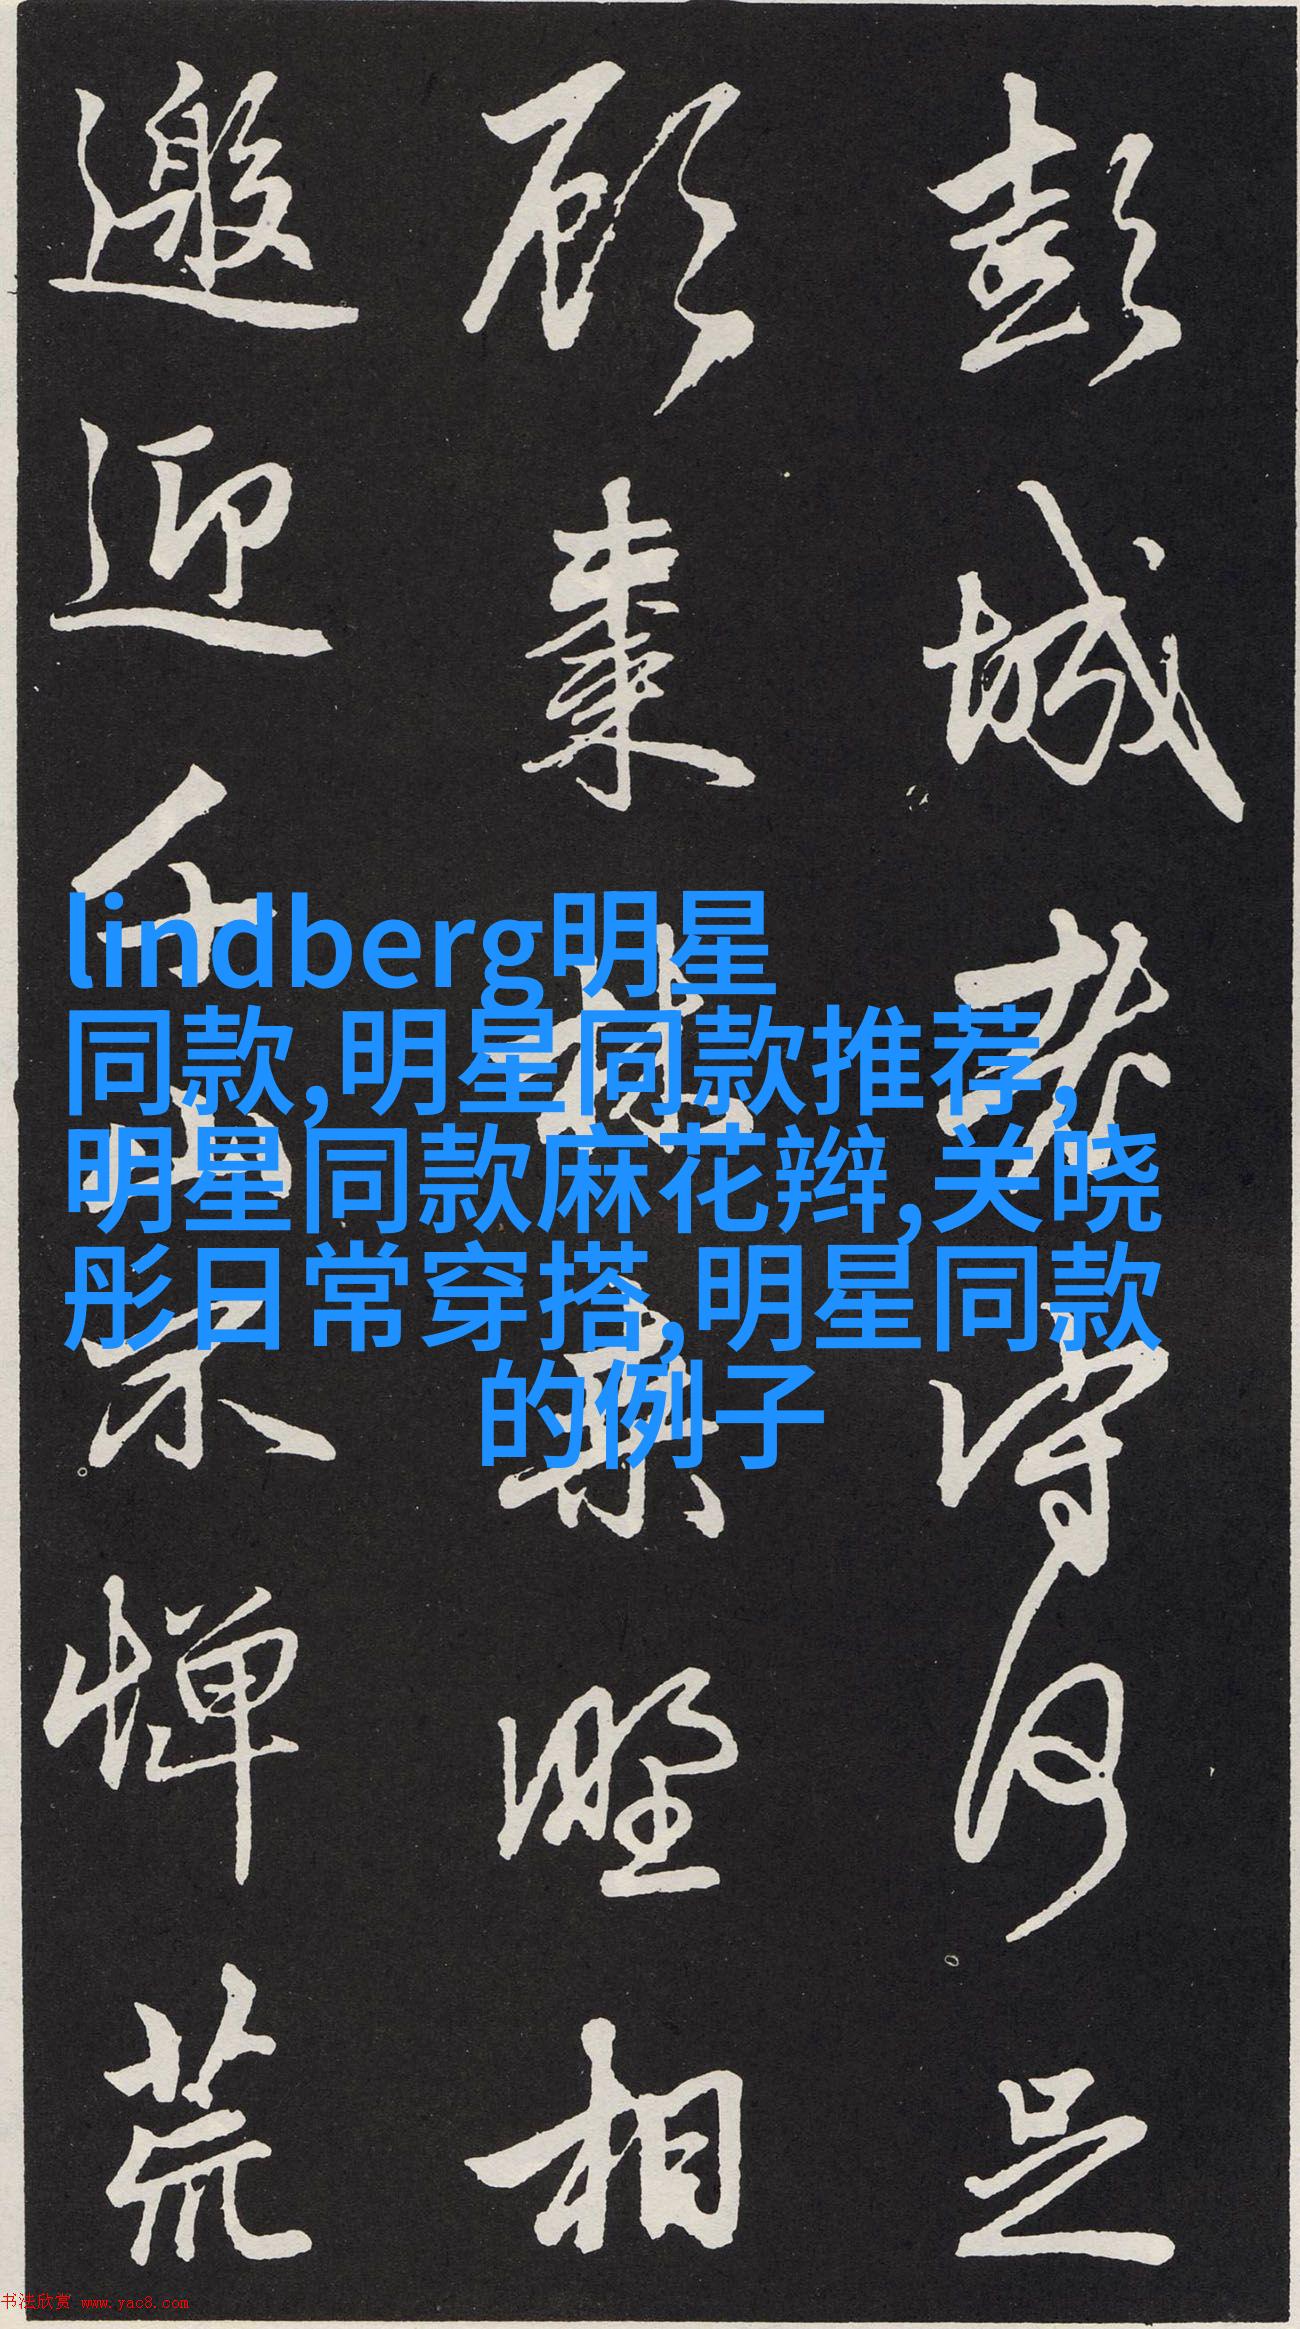 彭城老守何足
顧棗林桑野相
邀迎千山不憚荒
lindberg明星
同款,明星同款推荐,
明星同款麻花辫,关晓
彤日常穿搭,明星同款
的例子
书法欣赏 www.yac8.com